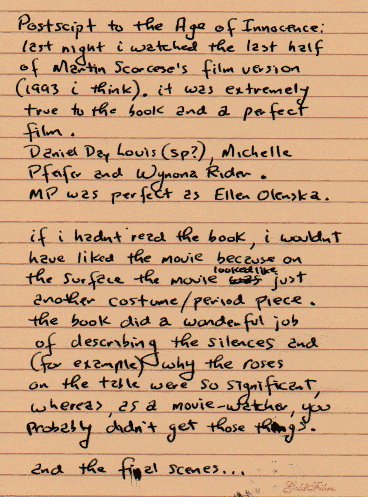 Postscipt to the Age of Innocence:
last night i watched the last half
of Martin Scorcese's film version
(1993 i think). it was extremely
true to the book and a perfect
film.
Daniel Day Louis (sp?), Michelle
Pfeifer and Wynona Rider.
MP was perfect as Ellen Olenska.
if i hadnt read the book, i wouldnt
have liked the movie because on
the surface the movie looked like just
another costume/period piece.
the book did a wonderful job
of describing the silences and
(for example) why the roses
on the table were so significant,
whereas, as a movie-watcher, you
probably didn't get those things.
and the final scenes...